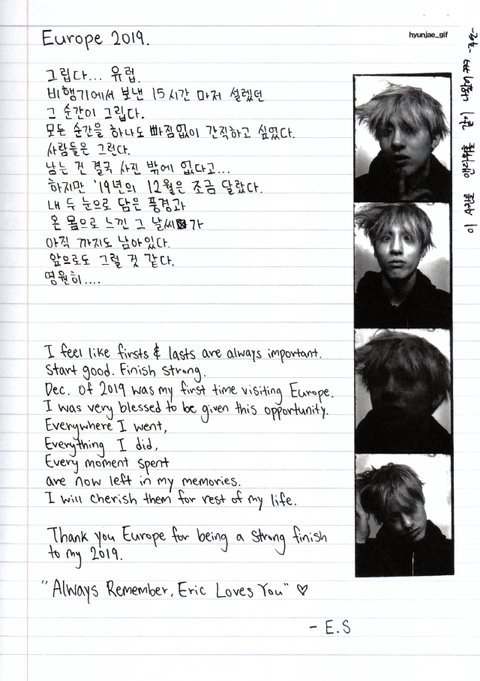 Europe 2019.
hyunjae_gif
그립다... 유럽.
비행기에서 보낸 15시간 마저 설렜던
그 순간이 그립다.
모든 순간을 하나도 빠짐없이 간직하고 싶었다.
사람들은 그런다.
남는 건 결국 사진 밖에 없다고...
하지만 '19년의 12월은 조금 달랐다.
내 두 눈으로 담은 풍경과
온 몸으로 느낀 그 날씨가
아직 까지도 남아있다.
앞으로도 그럴 것 같다.
영원히....
I feel like firsts & lasts are always important.
Start good. Finish strong.
Dec. of 2019 was my first time visiting Europe.
I was very blessed to be given this opportunity.
Everywhere I went,
Everything I did,
Every moment spent
are now left in my memories.
I will cherish them for rest of my life.
Thank you Europe for being a strong finish
to my 2019.
"Always Remember, Eric Loves You" ♡
- E.S
이 사진으로